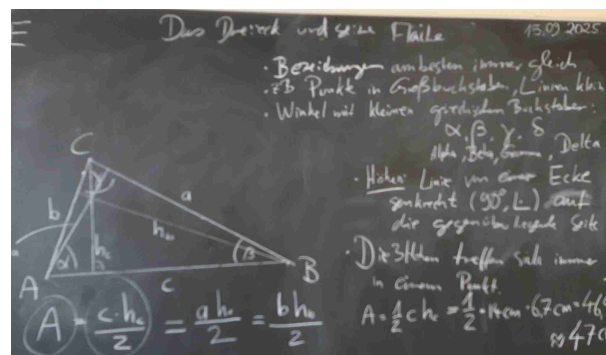 E
Das Dreieck und seine Fläche 15.09.2025
• Bezeichnungen am besten immer gleich
• zB Punkte in Großbuchstaben, Linien klein
• Winkel mit kleinen griechischen Buchstaben:
α, β, γ, δ
Alpha, Beta, Gamma, Delta
• Höhen: Linie von einer Ecke
senkrecht (90°, L) auf
die gegenüberliegende Seite
• Die 3 Höhen treffen sich immer
in einem Punkt.
C
γ
a
b
h_b
h_c
α
β
A
c
B
A = c·h_c/2 = a h_a/2 = b h_b/2
A = 1/2 c h_c = 1/2 · 14 cm · 6,7 cm = 46,
≈ 47 c